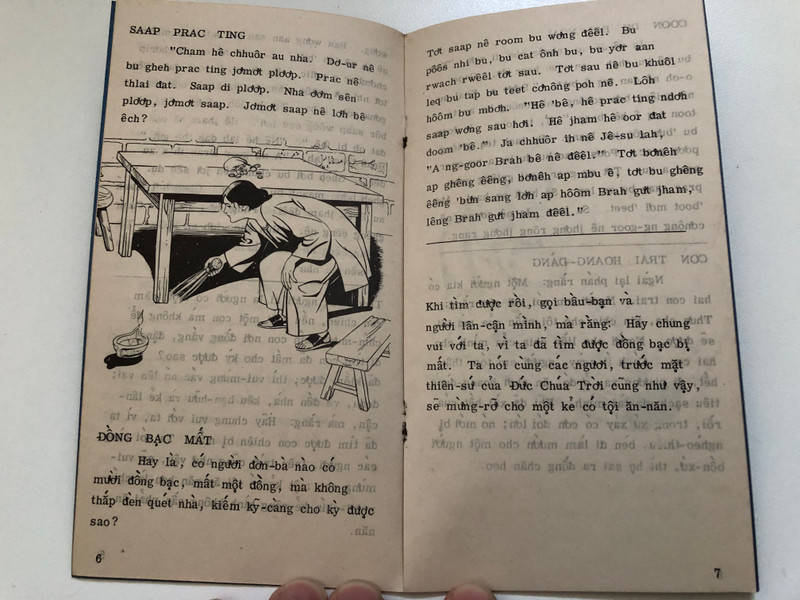 SAAP PRAC TING
"Cham hê chhuôr au nha. Dơ-ur nê
bu gheh prac ting jơmơt plơơp. Prac nê
thlai đat. Saap di plơơp. Nha đơm sên
plơơp, jơmơt saap. Jơmơt saap nê lơh bê
êch?
ĐỒNG BẠC MẤT
Hay là, có người đờn-bà nào có
mười đồng bạc, mất một đồng, mà không
thắp đèn quét nhà, kiếm kỹ-càng cho kỳ được
sao?
6
Tơt saap nê room bu wơng đêêl. Bu
pôôs nhi bu, bu cat ônh bu, bu yơr aan
rwach rwêêl tơt sau. Tơt sau nê bu khuôl
leq bu tap bu teet cơnông poh nê. Lôh
hôôm bu mbơh. "Hê 'bê, hê prac ting ndơh
saap wơng sau hơi. Hê jham hê oor đat
doom 'bê." Ja chhuôr ih nê Jê-su lah,
"A ng-goor Brah bê nê đêêl." Tơt bơnêh
ap ghêng êêng, bơnêh ap mbu ê, tơt bu ghêng
êêng 'bŭn sang lơh ap hôôm Brah gŭt jham,
lêng Brah gŭt jham đêêl."
Khi tìm được rồi, gọi bầu-bạn và
người lân-cận mình, mà rằng: Hãy chung
vui với ta, vì ta đã tìm được đồng bạc bị
mất. Ta nói cùng các ngươi, trước mặt
thiên-sứ của Đức Chúa Trời cũng như vậy,
sẽ mừng-rỡ cho một kẻ có tội ăn-năn.
7